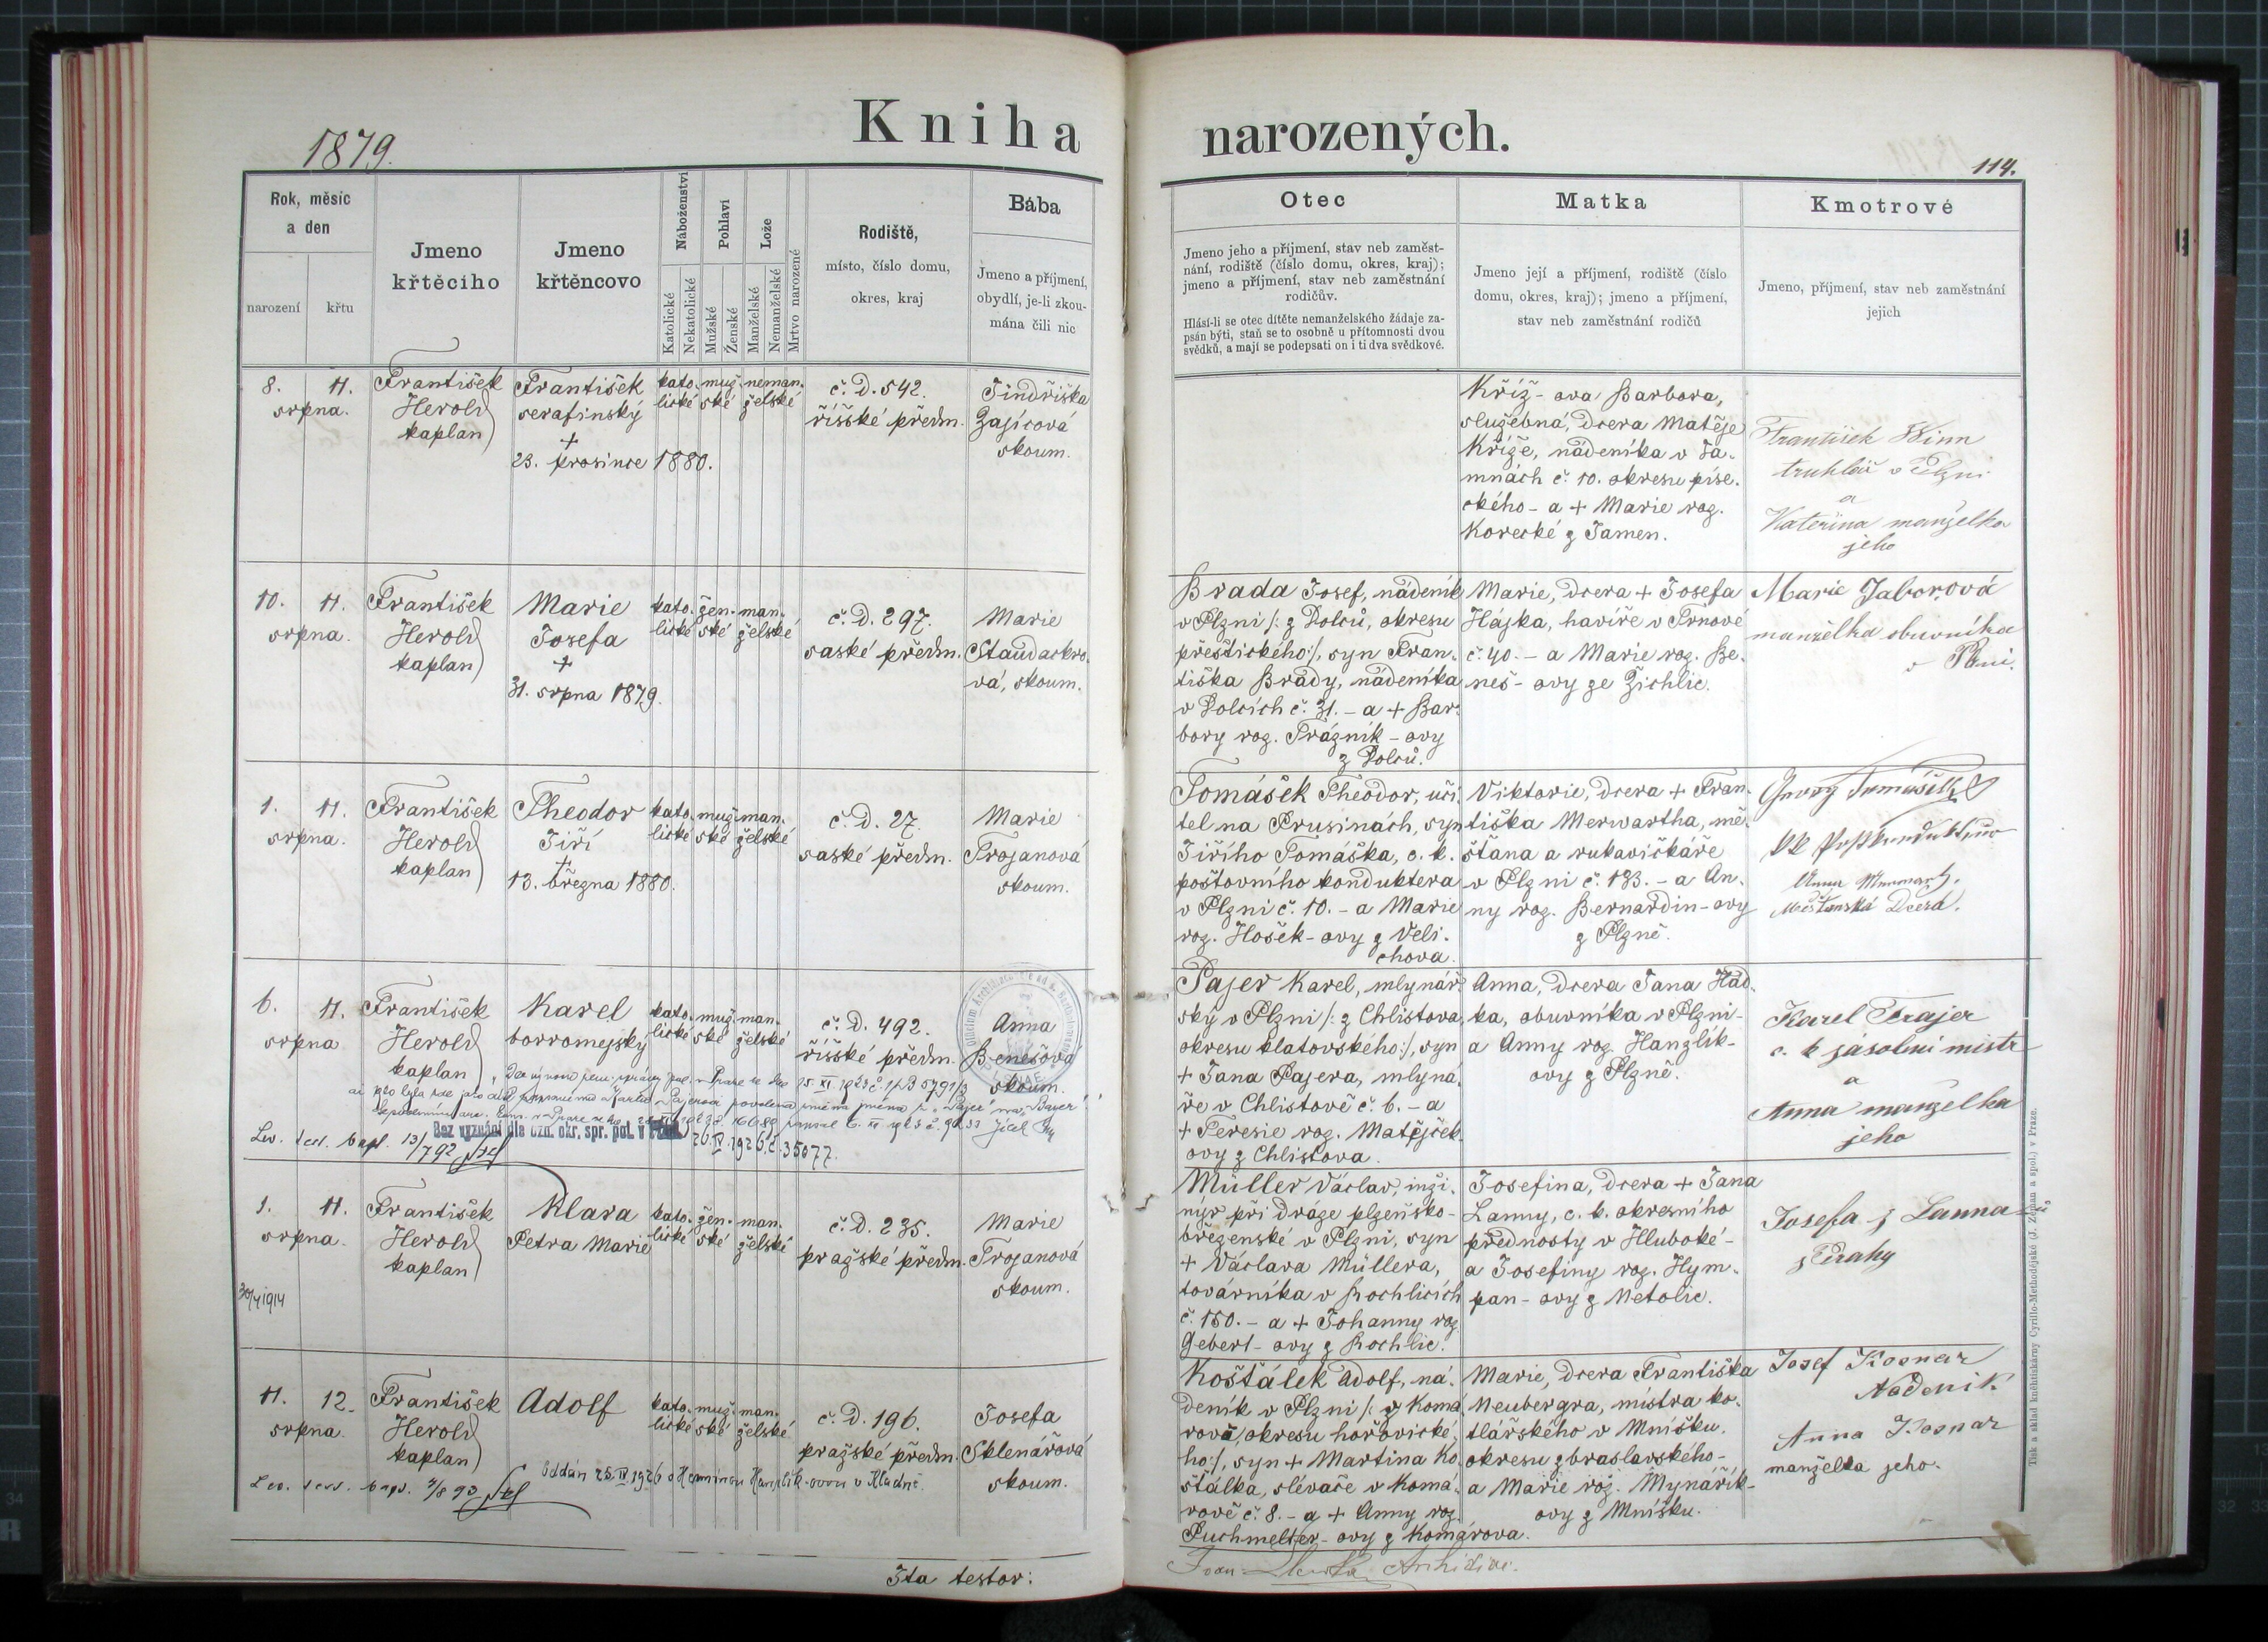 1879.
Kniha narozených.
114.
Rok, měsíc
a den
narození
křtu
Jmeno
křtěcího
Jmeno
křtěncovo
Náboženství
Katolické
Nekatolické
Pohlaví
Mužské
Ženské
Lože
Manželské
Nemanželské
Mrtvo narozené
Rodiště,
místo, číslo domu,
okres, kraj
Bába
Jmeno a příjmení,
obydlí, je-li zkou-
mána čili nic
Otec
Jmeno jeho a příjmení, stav neb zaměst-
nání, rodiště (číslo domu, okres, kraj);
jmeno a příjmení, stav neb zaměstnání
rodičův.
Hlásí-li se otec dítěte nemanželského žádaje za-
psán býti, staň se to osobně u přítomnosti dvou
svědků, a mají se podepsati on i ti dva svědkové.
Matka
Jmeno její a příjmení, rodiště (číslo
domu, okres, kraj); jmeno a příjmení,
stav neb zaměstnání rodičů
Kmotrové
Jmeno, příjmení, stav neb zaměstnání
jejich
8. 11.
srpna.
František
Herold
kaplan
František
serafinský
+
23. prosince 1880.
kato- muž- neman-
lické ské želské
č. D. 542.
říšské předm.
Jindřiška
Zajícová
skoum.
Kříž-ova Barbora,
služebná, dcera Matěje
Kříže, nádeníka v Ja-
mnách č. 10. okresu píse-
ckého - a + Marie roz.
Korecké z Jamen.
František Winn
truhlář v Plzni
a
Kateřina manželka
jeho
10. 11.
srpna.
František
Herold
kaplan
Marie
Josefa
+
31. srpna 1879.
kato- žen- man-
lické ské želské
č. D. 297.
saské předm.
Marie
Staudackro-
vá, skoum.
Brada Josef, nádeník
v Plzni /: z Dolců, okresu
přeštického :/, syn Fran-
tiška Brady, nádeníka
v Dolcích č. 31. - a + Bar-
bory roz. Prázník-ovy
z Dolců.
Marie, dcera + Josefa
Hájka, havíře v Trnové
č. 40. - a Marie roz. Be-
neš-ovy ze Žichlic.
Marie Jaborová
manželka obuvníka
v Plzni.
1. 11.
srpna.
František
Herold
kaplan
Theodor
Jiří
+
13. března 1880.
kato- muž- man-
lické ské želské
č. D. 27.
saské předm.
Marie
Trojanová
skoum.
Tomášek Theodor, uči-
tel na Prusinách, syn
Jiřího Tomáška, c. k.
poštovního konduktera
v Plzni č. 10. - a Marie
roz. Hošek-ovy z Veli-
chova.
Viktorie, dcera + Fran-
tiška Merwartha, mě-
šťana a rukavičkáře
v Plzni č. 133. - a An-
ny roz. Bernardin-ovy
z Plzně.
Georg Tomaschek
kk Postkondukteur
Měšťanská Dcera.
6. 11.
srpna
František
Herold
kaplan
Karel
borromejský
kato- muž- man-
lické ské želské
č. D. 492.
říšské předm.
Anna
Benešová
skoum.
Bez vyznání dle ozn. okr. spr. pol. v Plzni
26. IV. 1926 č. 35077.
Lev. 1 ccl. bapl. 13/7 92
Pajer Karel, mlynář-
ský v Plzni /: z Chlistova,
okresu klatovského :/, syn
+ Jana Pajera, mlyná-
ře v Chlistově č. 6. - a
+ Teresie roz. Matějček-
ovy z Chlistova.
Anna, dcera Jana Hád-
ka, obuvníka v Plzni -
a Anny roz. Hanzlík-
ovy z Plzně.
Karel
c. k. mistr
a
Anna manželka
jeho
1. 11.
srpna.
30/4 1914
František
Herold
kaplan
Klara
Petra Marie
kato- žen- man-
lické ské želské
č. D. 235.
pražské předm.
Marie
Trojanová
skoum.
Müller Václav, inži-
nyr při dráze plzeňsko-
březenské v Plzni, syn
+ Václava Müllera,
továrníka v Rochlicích
č. 150. - a + Johanny roz.
Gebert-ovy z Rochlic.
Josefina, dcera + Jana
Lanny, c. k. okresního
přednosty v Hluboké -
a Josefiny roz. Hym-
pan-ovy z Netolic.
Josefa z Lanna
z Prahy
11. 12.
srpna.
František
Herold
kaplan
Adolf
kato- muž- man-
lické ské želské
č. D. 196.
pražské předm.
Josefa
Sklenářová
skoum.
Lev. 1 ccl. bapl. 4/8 93
Oddán 25. IV 1926 s Herminou Hanzlík-ovou v Kladně.
Košťálek Adolf, ná-
deník v Plzni /: z Komá-
rova, okresu hořovické-
ho :/, syn + Martina Ko-
šťálka, slévače v Komá-
rově č. 8. - a + Anny roz.
Puchmelter-ovy z Komárova.
Marie, dcera Františka
Neubergra, mistra ko-
tlářského v Mníšku.
okresu zbraslavského -
a Marie roz. Mynařík-
ovy z Mníšku.
Josef Kosnar
Nadenik
Anna Kosnar
manželka jeho.
Ita testor:
Archidiac.
Tisk a sklad knihtiskárny Cyrillo-Methodějské (J. Zeman a spol.) v Praze.